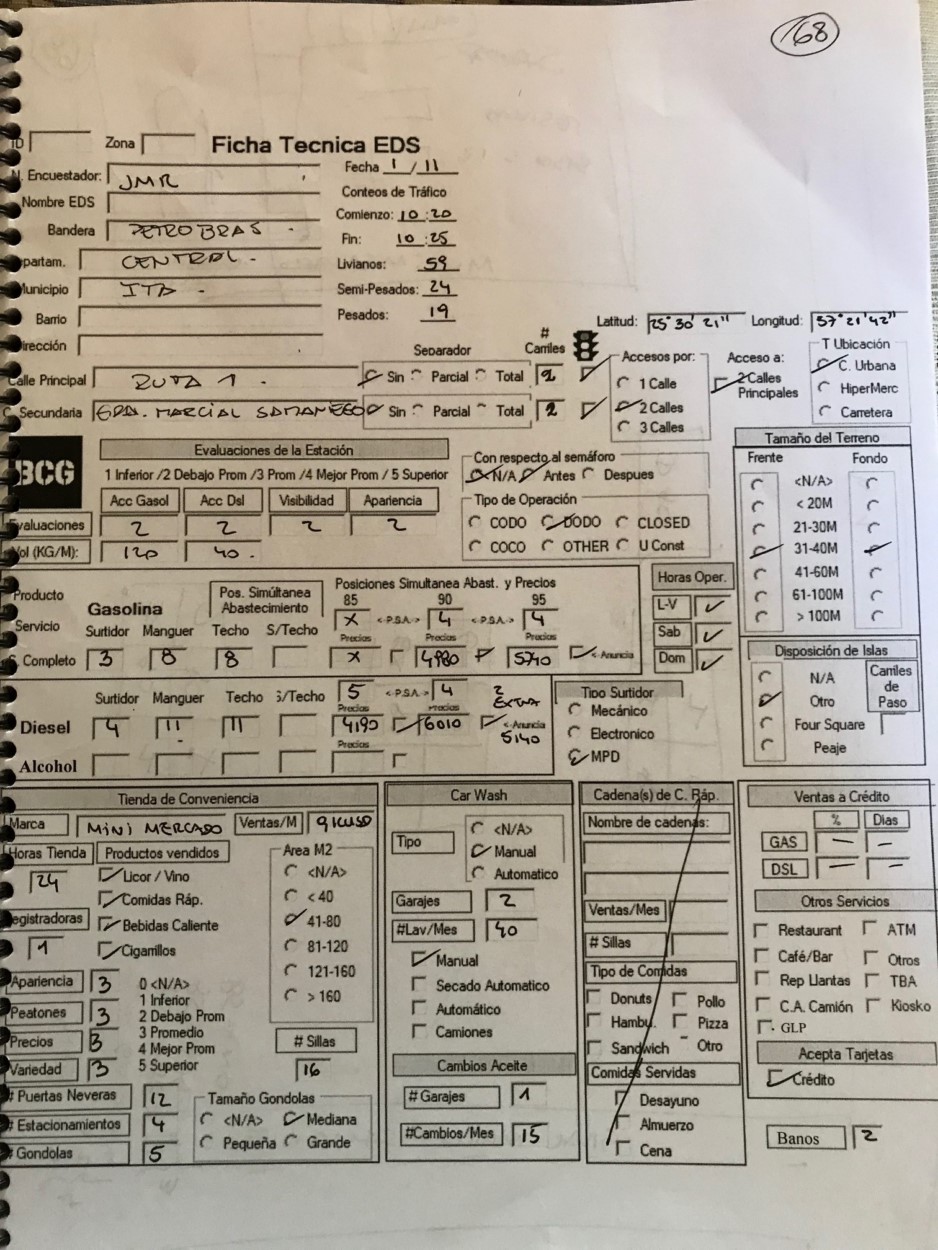 168
ID Zona Ficha Tecnica EDS
N. Encuestador: JMR Fecha 1 / 11
Nombre EDS Conteos de Tráfico
Bandera PETROBRAS - Comienzo: 10:20
partam. CENTRAL - Fin: 10:25
Municipio ITA - Livianos: 59
Barrio Semi-Pesados: 24
Dirección Pesados: 19
Latitud: 25° 30' 21" Longitud: 57° 21' 42"
Separador # Carriles Accesos por: Acceso a: T Ubicación
Calle Principal RUTA 1 - Sin Parcial Total 2 1 Calle 2 Calles Principales C. Urbana
C. Secundaria GRAL. MARCIAL SAMANIEGO Sin Parcial Total 2 2 Calles HiperMerc
3 Calles Carretera
BCG
Evaluaciones de la Estación
1 Inferior /2 Debajo Prom /3 Prom /4 Mejor Prom / 5 Superior
Acc Gasol Acc Dsl Visibilidad Apariencia
Evaluaciones 2 2 2 2
Vol (KG/M): 120 40 -
Con respecto al semáforo
N/A Antes Despues
Tipo de Operación
CODO DODO CLOSED
COCO OTHER U Const
Tamaño del Terreno
Frente Fondo
<N/A>
< 20M
21-30M
31-40M
41-60M
61-100M
> 100M
Producto
Servicio
Gasolina Pos. Simúltanea Abastecimiento
Posiciones Simultanea Abast. y Precios
85 90 95
X <-P.S.A.-> 4 <-P.S.A.-> 4
Surtidor Manguer Techo S/Techo Precios Precios Precios
Completo 3 8 8 X 4980 5740 <-Anuncia
Horas Oper.
L-V
Sab
Dom
Disposición de Islas
N/A Carriles de Paso
Otro
Four Square
Peaje
Surtidor Manguer Techo S/Techo 5 <-P.S.A.-> 4 2 EXTRA
Precios Precios
Diesel 4 11 11 4190 6010 <-Anuncia 5140
Precios
Alcohol
Tipo Surtidor
Mecánico
Electronico
MPD
Tienda de Conveniencia
Marca MINI MERCADO Ventas/M 9KUSD
Horas Tienda Productos vendidos
24 Licor / Vino
Comidas Ráp.
Registradoras Bebidas Caliente
1 Cigarrillos
Area M2
<N/A>
< 40
41-80
81-120
121-160
> 160
Apariencia 3 0 <N/A>
1 Inferior
Peatones 3 2 Debajo Prom
Precios 3 3 Promedio
4 Mejor Prom
Variedad 3 5 Superior
# Sillas
16
# Puertas Neveras 12 Tamaño Gondolas
# Estacionamientos 4 <N/A> Mediana
# Gondolas 5 Pequeña Grande
Car Wash
Tipo <N/A>
Manual
Automatico
Garajes 2
#Lav/Mes 40
Manual
Secado Automatico
Automático
Camiones
Cambios Aceite
# Garajes 1
#Cambios/Mes 15
Cadena(s) de C. Ráp.
Nombre de cadenas:
Ventas/Mes
# Sillas
Tipo de Comidas
Donuts Pollo
Hambu. Pizza
Sandwich Otro
Comidas Servidas
Desayuno
Almuerzo
Cena
Ventas a Crédito
% Dias
GAS — —
DSL — —
Otros Servicios
Restaurant ATM
Café/Bar Otros
Rep Llantas TBA
C.A. Camión Kiosko
GLP
Acepta Tarjetas
Crédito
Banos 2